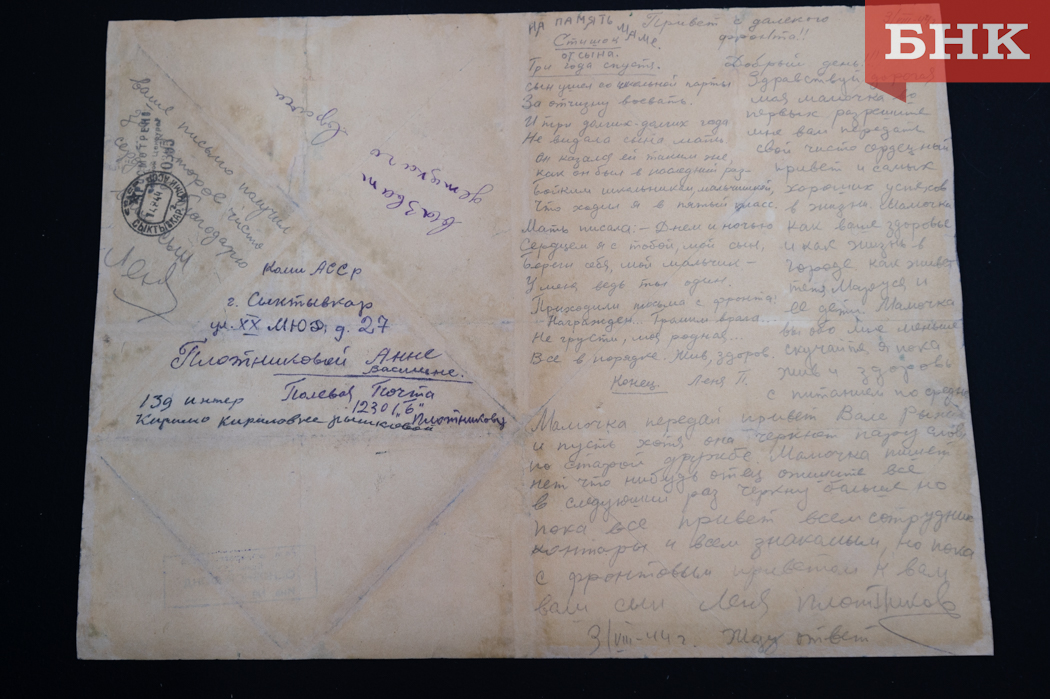 БНК
НА ПАМЯТЬ МАМЕ.
Стишок
от сына.
Три года спустя.
сын ушел со школьной парты
За отчизну воевать.
И три долгих-долгих года
Не видала сына мать.
Он казался ей таким же,
как он был в последний раз-
Бойким школьником, мальчишкой,
Что ходил в пятый класс.
Мать писала: - Днем и ночью
Сердцем я с тобой, мой сын,
Береги себя, мой мальчик -
У меня ведь ты один.
Приходили письма с фронта:
- Награжден... Громим врага...
Не грусти, моя родная...
Все в порядке. Жив, здоров
Конец. Леня П.
Привет с далекого
фронта!!
Добрый день.
Здравствуй дорогая
моя мамочка во
первых разрешите
мне вам передать
свой чисто сердечный
привет и самых
хороших успехов
в жизни. Мамочка
как ваше здоровье
и как жизнь в
городе как живет
тетя Маруся и
ее дети. Мамочка
вы обо мне меньше
скучайте. Я пока
жив и здоровь
с питанием по средне
Мамочка передай привет Вале
и пусть хотя она черкнет пару слов
по старой дружбе. Мамочка пишет
нет что нибудь отец опишите все
в следующий раз черкну больше но
пока все привет всем сотрудник
конторы и всем знакомым, но пока
с фронтовым приветом к вам
ваш сын Леня Плотников
3/VIII-44 г. Жду ответ
ваше письмо получил
которое чисто
сердечно благодарю
сын
Леня
ПРОСМОТРЕНО
СЫКТЫВКАР
Коми АССР
г. Сыктывкар
ул. XX МЮД, д. 27
Плотниковой Анне
Васильевне.
139 интер Полевая Почта
12301 "Б"
Плотникову